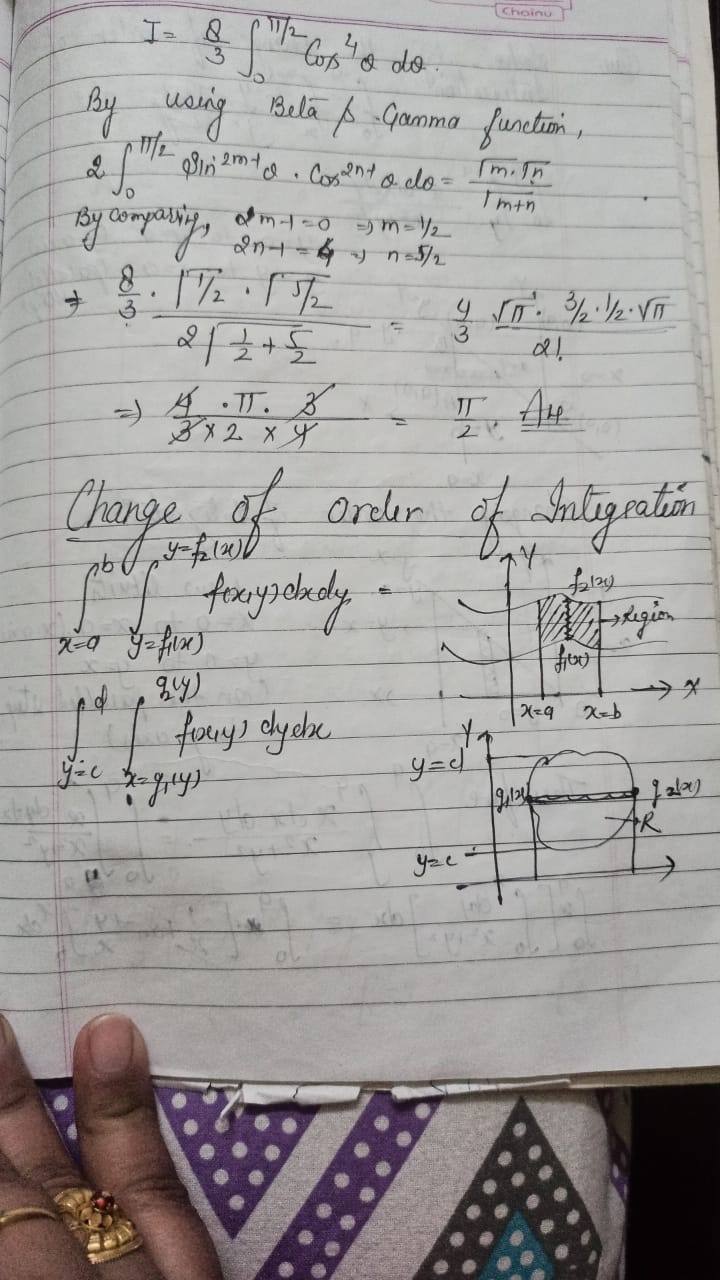 Chainu
I = 8/3 ∫₀^π/2 Cos⁴θ dθ.
By using Beta & Gamma function,
2 ∫₀^π/2 Sin^2m-1 θ . Cos^2n-1 θ dθ = Γm.Γn / Γm+n
By comparing, 2m-1=0 ⇒ m=1/2
2n-1=4 ⇒ n=5/2
⇒ 8/3 . Γ1/2 . Γ5/2 / 2Γ1/2+5/2 = 4/3 √π . 3/2.1/2.√π / 2!
⇒ 4.π.3 / 3×2×4 = π/2. Ans
Change of order of Integration
∫_x=a^b ∫_y=f₁(x)^y=f₂(x) f(x,y) dxdy =
Y
f₂(x)
→Region
f₁(x)
x=a x=b
X
∫_y=c^d ∫_x=g₁(y)^g₂(y) f(x,y) dydx
Y
y=d
g₁(x) g₂(x)
R
y=c